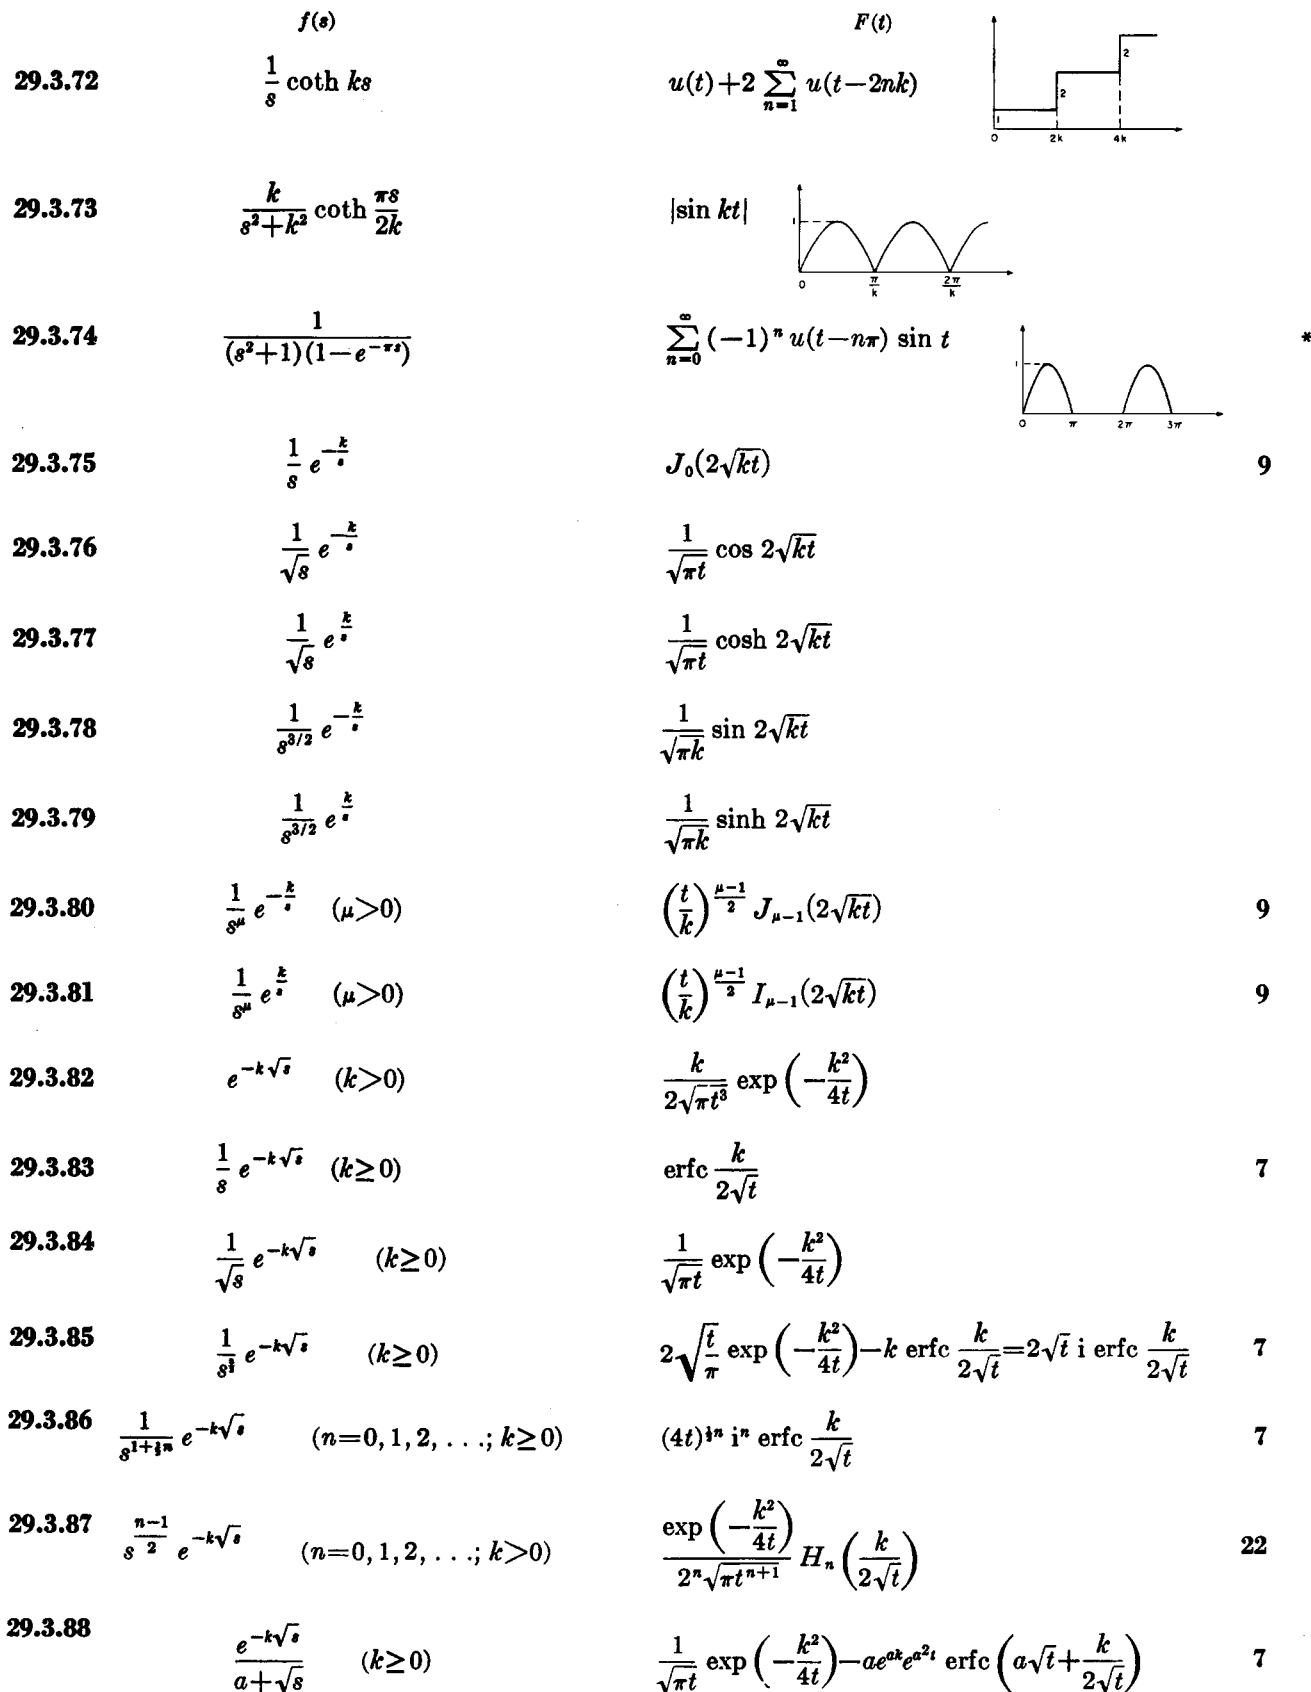 f(s) F(t)
29.3.72 $\frac{1}{s} \coth ks$ $u(t)+2\sum_{n=1}^{\infty} u(t-2nk)$
2
2
1
0 2k 4k
29.3.73 $\frac{k}{s^2+k^2} \coth \frac{\pi s}{2k}$ $|\sin kt|$
1
0 $\frac{\pi}{k}$ $\frac{2\pi}{k}$
29.3.74 $\frac{1}{(s^2+1)(1-e^{-\pi s})}$ $\sum_{n=0}^{\infty} (-1)^n u(t-n\pi) \sin t$ *
1
0 π 2π 3π
29.3.75 $\frac{1}{s} e^{-\frac{k}{s}}$ $J_0(2\sqrt{kt})$ 9
29.3.76 $\frac{1}{\sqrt{s}} e^{-\frac{k}{s}}$ $\frac{1}{\sqrt{\pi t}} \cos 2\sqrt{kt}$
29.3.77 $\frac{1}{\sqrt{s}} e^{\frac{k}{s}}$ $\frac{1}{\sqrt{\pi t}} \cosh 2\sqrt{kt}$
29.3.78 $\frac{1}{s^{3/2}} e^{-\frac{k}{s}}$ $\frac{1}{\sqrt{\pi k}} \sin 2\sqrt{kt}$
29.3.79 $\frac{1}{s^{3/2}} e^{\frac{k}{s}}$ $\frac{1}{\sqrt{\pi k}} \sinh 2\sqrt{kt}$
29.3.80 $\frac{1}{s^{\mu}} e^{-\frac{k}{s}}$ (μ>0) $\left(\frac{t}{k}\right)^{\frac{\mu-1}{2}} J_{\mu-1}(2\sqrt{kt})$ 9
29.3.81 $\frac{1}{s^{\mu}} e^{\frac{k}{s}}$ (μ>0) $\left(\frac{t}{k}\right)^{\frac{\mu-1}{2}} I_{\mu-1}(2\sqrt{kt})$ 9
29.3.82 $e^{-k\sqrt{s}}$ (k>0) $\frac{k}{2\sqrt{\pi t^3}} \exp\left(-\frac{k^2}{4t}\right)$
29.3.83 $\frac{1}{s} e^{-k\sqrt{s}}$ (k≥0) $\text{erfc} \frac{k}{2\sqrt{t}}$ 7
29.3.84 $\frac{1}{\sqrt{s}} e^{-k\sqrt{s}}$ (k≥0) $\frac{1}{\sqrt{\pi t}} \exp\left(-\frac{k^2}{4t}\right)$
29.3.85 $\frac{1}{s^{\frac{3}{2}}} e^{-k\sqrt{s}}$ (k≥0) $2\sqrt{\frac{t}{\pi}} \exp\left(-\frac{k^2}{4t}\right)-k \text{ erfc} \frac{k}{2\sqrt{t}}=2\sqrt{t} \text{ i erfc} \frac{k}{2\sqrt{t}}$ 7
29.3.86 $\frac{1}{s^{1+\frac{1}{2}n}} e^{-k\sqrt{s}}$ (n=0, 1, 2, . . .; k≥0) $(4t)^{\frac{1}{2}n} \text{ i}^n \text{ erfc} \frac{k}{2\sqrt{t}}$ 7
29.3.87 $s^{\frac{n-1}{2}} e^{-k\sqrt{s}}$ (n=0, 1, 2, . . .; k>0) $\frac{\exp\left(-\frac{k^2}{4t}\right)}{2^n\sqrt{\pi t^{n+1}}} H_n\left(\frac{k}{2\sqrt{t}}\right)$ 22
29.3.88 $\frac{e^{-k\sqrt{s}}}{a+\sqrt{s}}$ (k≥0) $\frac{1}{\sqrt{\pi t}} \exp\left(-\frac{k^2}{4t}\right)-ae^{ak}e^{a^2t} \text{ erfc}\left(a\sqrt{t}+\frac{k}{2\sqrt{t}}\right)$ 7